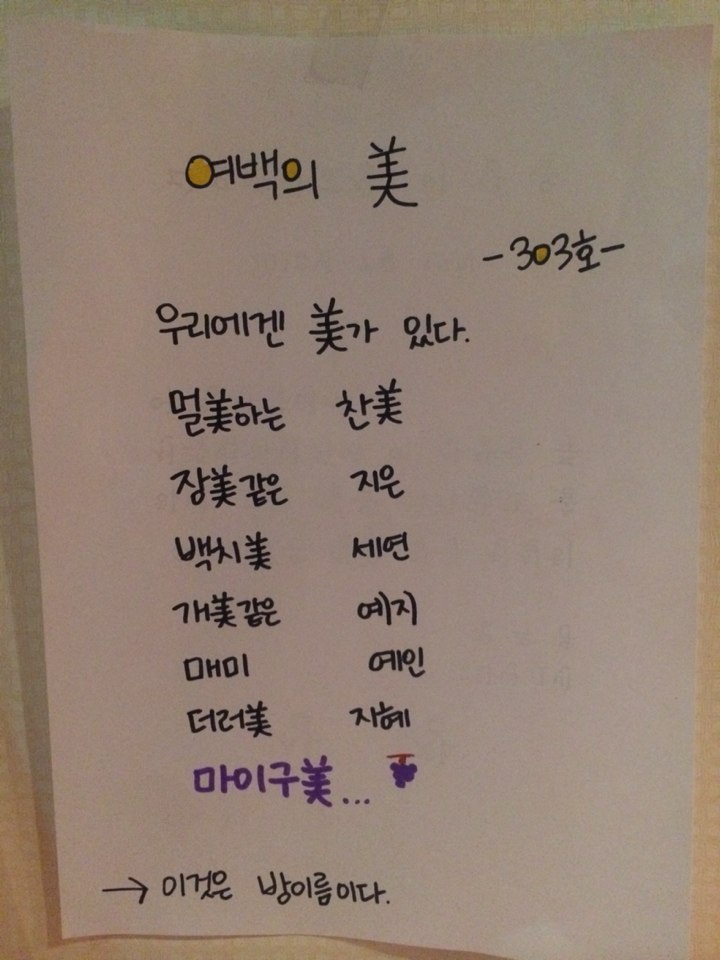 여백의 美
-303호-
우리에겐 美가 있다.
멀美하는 찬美
장美같은 지은
백치美 세연
개美같은 예지
매미 예인
더러美 지혜
마이구美...
→ 이것은 방이름이다.